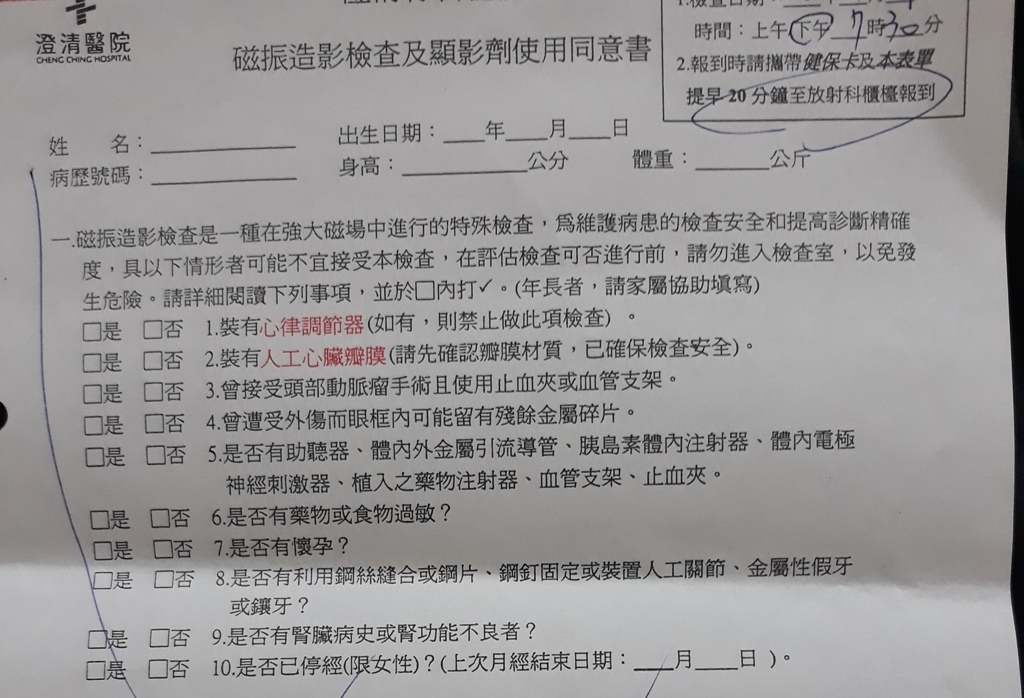 澄清醫院
CHENG CHING HOSPITAL
磁振造影檢查及顯影劑使用同意書
1.檢查日期:
時間:上午 下午 7時30分
2.報到時請攜帶健保卡及本表單
提早20分鐘至放射科櫃檯報到
姓 名:__________ 出生日期:___年___月___日
病歷號碼:__________ 身高:__________公分 體重:______公斤
一.磁振造影檢查是一種在強大磁場中進行的特殊檢查,為維護病患的檢查安全和提高診斷精確
度,具以下情形者可能不宜接受本檢查,在評估檢查可否進行前,請勿進入檢查室,以免發
生危險。請詳細閱讀下列事項,並於□內打✓。(年長者,請家屬協助填寫)
□是 □否 1.裝有心律調節器(如有,則禁止做此項檢查)。
□是 □否 2.裝有人工心臟瓣膜(請先確認瓣膜材質,已確保檢查安全)。
□是 □否 3.曾接受頭部動脈瘤手術且使用止血夾或血管支架。
□是 □否 4.曾遭受外傷而眼框內可能留有殘餘金屬碎片。
□是 □否 5.是否有助聽器、體內外金屬引流導管、胰島素體內注射器、體內電極
神經刺激器、植入之藥物注射器、血管支架、止血夾。
□是 □否 6.是否有藥物或食物過敏?
□是 □否 7.是否有懷孕?
□是 □否 8.是否有利用鋼絲縫合或鋼片、鋼釘固定或裝置人工關節、金屬性假牙
或鑲牙?
□是 □否 9.是否有腎臟病史或腎功能不良者?
□是 □否 10.是否已停經(限女性)?(上次月經結束日期:___月___日 )。